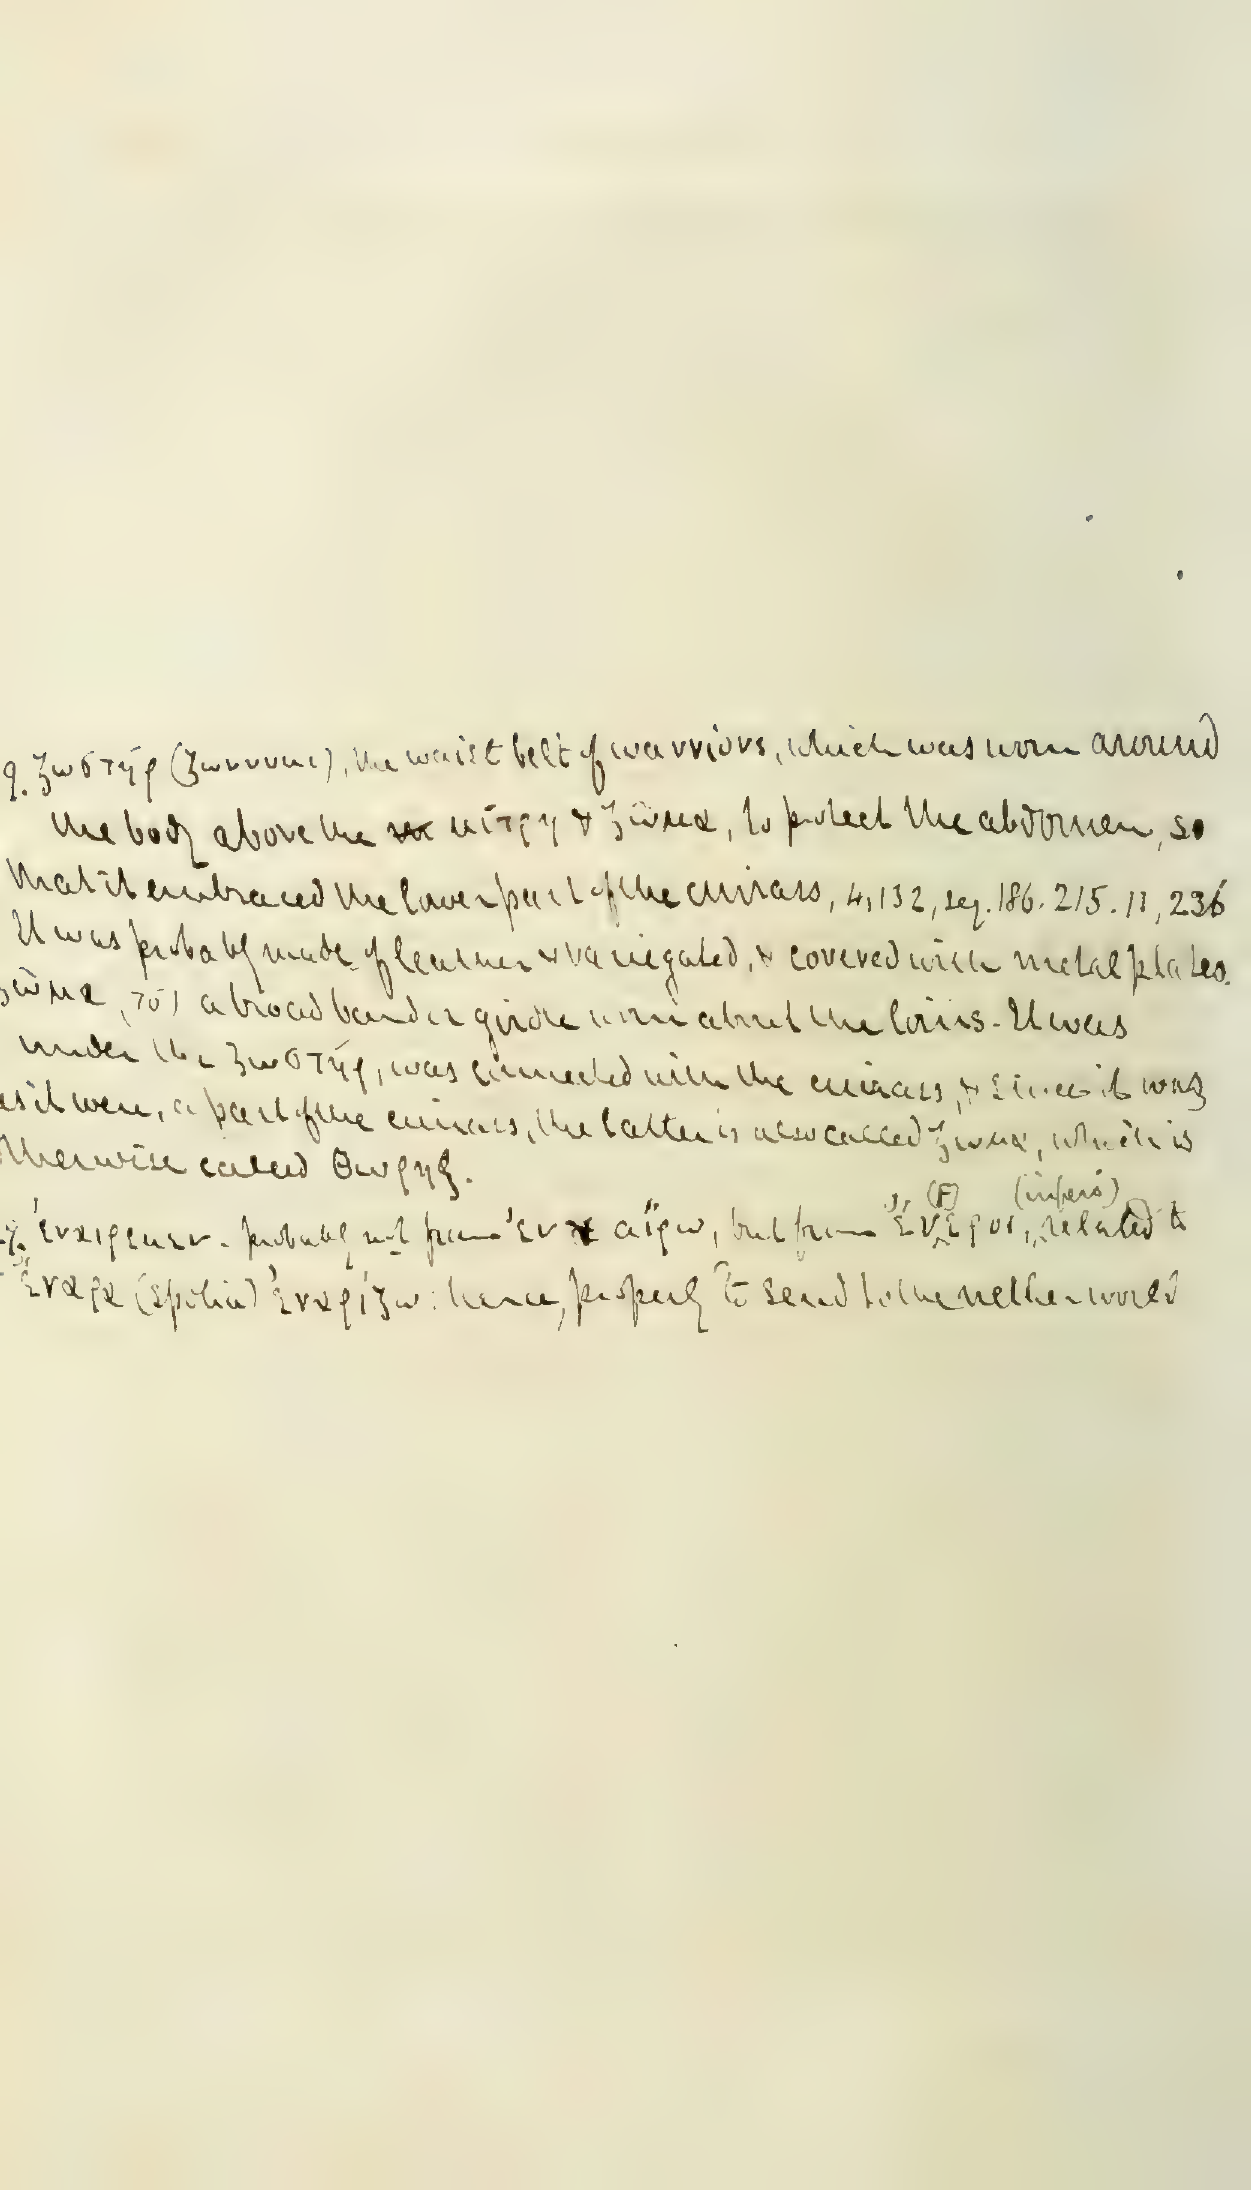 9. ζωστήρ (ζωννυμι), the waist belt of warriors, which was worn around
the body above the μίτρη & ζῶμα, to protect the abdomen, so
that it embraced the lower part of the cuirass, 4,132, seq. 186. 215. 11, 236
It was probably made of leather & variegated, & covered with metal plates.
ζῶμα, τό) a broad band or girdle worn about the loins. It was
under the ζωστήρ, was connected with the cuirass, & since it was
as it were, a part of the cuirass, the latter is also called ζωμα, which is
otherwise called Θωρηξ.
(F) (inferi)
ἐναιρεμεν. probably not from ἐν αἴρω, but from ἔνεροι, related to
ἔναρα (spolia) ἐναρίζω: hence, properly to send to the nether world